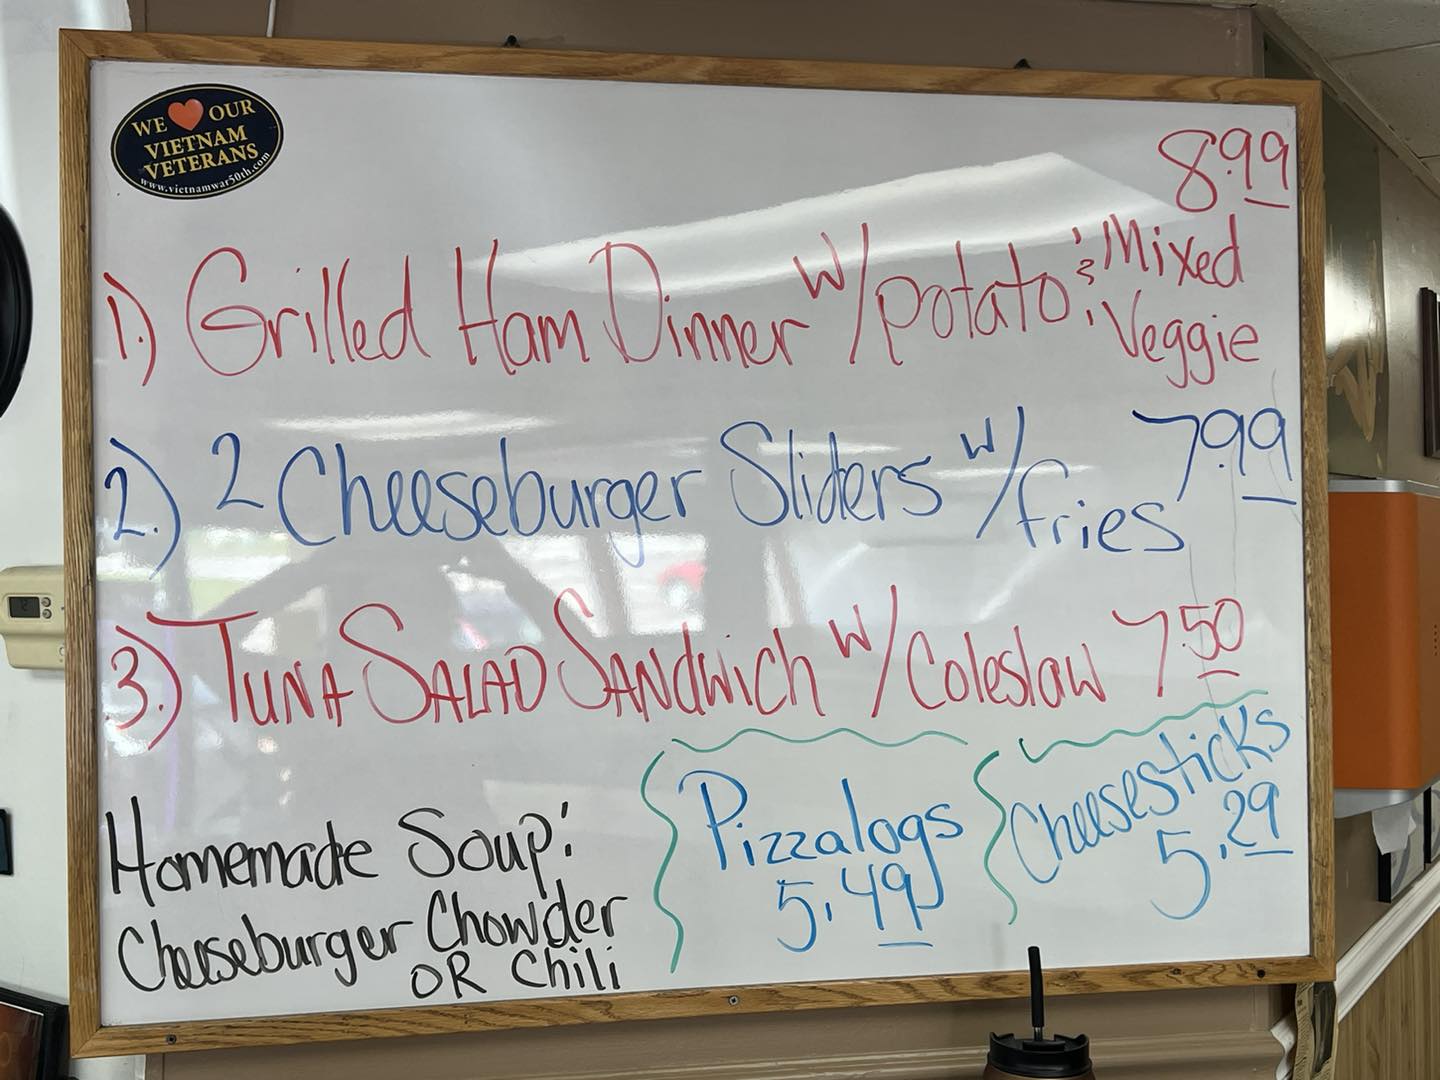 WE ❤ OUR
VIETNAM
VETERANS
www.vietnamwar50th.com
8.99
1.) Grilled Ham Dinner w/potato & Mixed
Veggie
2.) 2 Cheeseburger Sliders w/fries 7.99
3.) TUNA SALAD SANdwich w/Coleslaw 7.50
Homemade Soup:
Cheeseburger Chowder
OR Chili
Pizzalogs
5.49
Cheesesticks
5.29